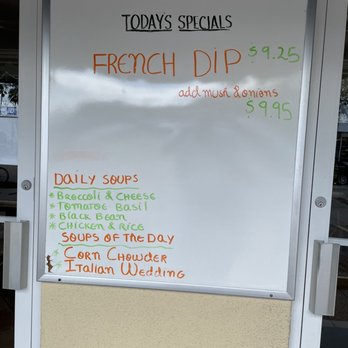 TODAY'S SPECIALS
FRENCH DIP $9.25
add mush & onions
$9.95
DAILY SOUPS
* Broccoli & Cheese
* Tomatoe Basil
* Black Bean
* Chicken & Rice
SOUPS OF THE DAY
* Corn Chowder
* Italian Wedding